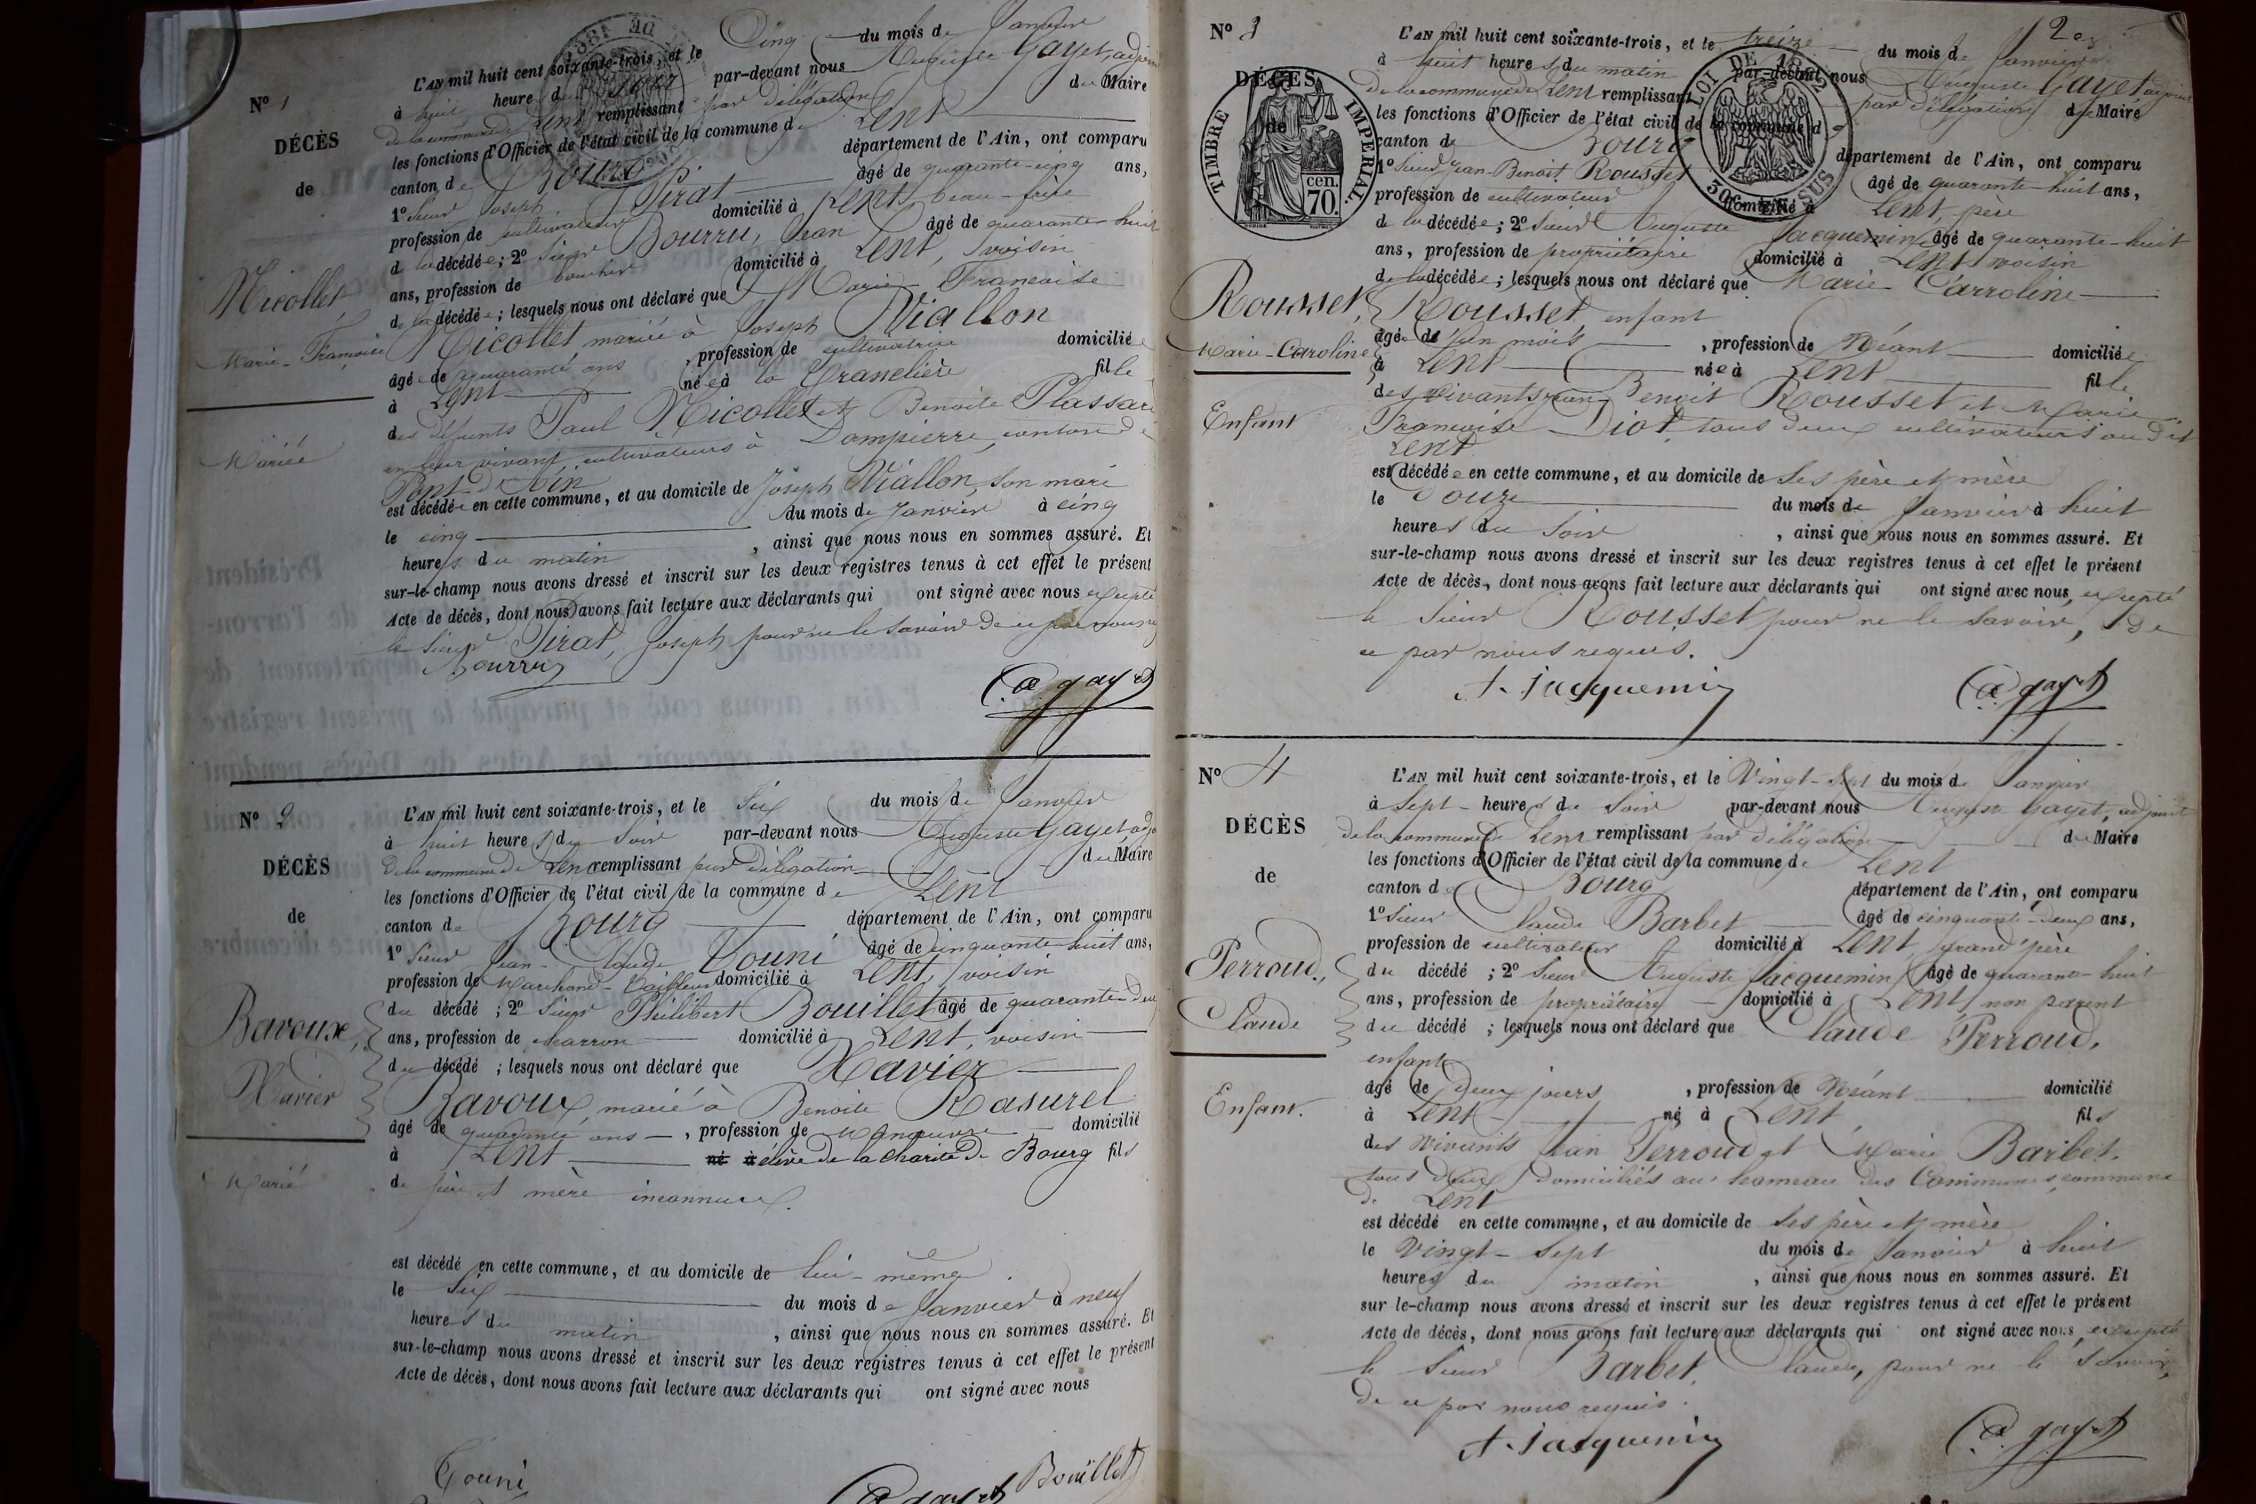 N° 1
DÉCÈS
de
Nicollet
Marie-Françoise
Mariée
L'AN mil huit cent soixante-trois, et le Cinq du mois de Janvier
à huit heure du par-devant nous Auguste Gayet, adjoint
de la commune de Lent remplissant par délégation du Maire
les fonctions d'Officier de l'état civil de la commune de Lent
canton de Bourg département de l'Ain, ont comparu
1° Sieur Joseph Pirat âgé de quarante-cinq ans,
profession de cultivateur domicilié à Lent, beau-frère
de la décédée; 2° Sieur Bourru, Jean âgé de quarante-huit
ans, profession de boucher domicilié à Lent, voisin
de la décédée; lesquels nous ont déclaré que Marie Françoise
Nicollet mariée à Joseph Viallon
âgée de quarante ans, profession de cultivatrice domiciliée
à Lent née à la Granclière fille
des défunts Paul Nicollet et Benoite Plassard
en leur vivant cultivateurs à Dompierre, canton de
Pont-d'Ain
est décédée en cette commune, et au domicile de Joseph Viallon, son mari
le cinq du mois de Janvier à cinq
heures du matin, ainsi que nous nous en sommes assuré. Et
sur-le-champ nous avons dressé et inscrit sur les deux registres tenus à cet effet le présent
Acte de décès, dont nous avons fait lecture aux déclarants qui ont signé avec nous excepté
le Sieur Pirat, Joseph pour ne le savoir de ce par nous requis
Bourru
A. Gayet
N° 2
DÉCÈS
de
Bavoux,
Xavier
Marié
L'AN mil huit cent soixante-trois, et le Six du mois de Janvier
à huit heures du soir par-devant nous Auguste Gayet adjoint
de la commune de Lent remplissant par délégation du Maire
les fonctions d'Officier de l'état civil de la commune de Lent
canton de Bourg département de l'Ain, ont comparu
1° Sieur Jean-Claude Couni âgé de cinquante-huit ans,
profession de Marchand-Tailleur domicilié à Lent, voisin
du décédé; 2° Sieur Philibert Bouillet âgé de quarante-deux
ans, profession de charron domicilié à Lent, voisin
du décédé; lesquels nous ont déclaré que Xavier
Bavoux marié à Benoite Rasurel
âgé de quarante ans, profession de manœuvre domicilié
à Lent né à élève de la charité de Bourg fils
de père et mère inconnus.
est décédé en cette commune, et au domicile de lui-même
le Six du mois de Janvier à neuf
heures du matin, ainsi que nous nous en sommes assuré. Et
sur-le-champ nous avons dressé et inscrit sur les deux registres tenus à cet effet le présent
Acte de décès, dont nous avons fait lecture aux déclarants qui ont signé avec nous
Couni
A. Gayet
Bouillet
N° 3
DÉCÈS
de
TIMBRE IMPERIAL.
70. cen.
LOI DE 1862
30c EN SUS
Rousset,
Marie-Caroline
Enfant
L'AN mil huit cent soixante-trois, et le treize du mois de Janvier
à huit heures du matin par-devant nous Auguste Gayet adjoint
de la commune de Lent remplissant par délégation du Maire
les fonctions d'Officier de l'état civil de la commune de
canton de Bourg département de l'Ain, ont comparu
1° Sieur Jean-Benoit Rousset âgé de quarante-huit ans,
profession de cultivateur domicilié à Lent, père
de la décédée; 2° Sieur Auguste Jacquemin, âgé de quarante-huit
ans, profession de propriétaire domicilié à Lent, voisin
de la décédée; lesquels nous ont déclaré que Marie-Carroline
Rousset, enfant
âgée de un mois, profession de Néant domiciliée
à Lent née à Lent fille
des vivants Jean Benoit Rousset et Marie
Françoise Diot, tous deux cultivateurs au dit
Lent
est décédée en cette commune, et au domicile de ses père et mère
le Douze du mois de Janvier à huit
heures du soir, ainsi que nous nous en sommes assuré. Et
sur-le-champ nous avons dressé et inscrit sur les deux registres tenus à cet effet le présent
Acte de décès, dont nous avons fait lecture aux déclarants qui ont signé avec nous, excepté
le Sieur Rousset pour ne le savoir, de
ce par nous requis.
A. Jacquemin
A. Gayet
N° 4
DÉCÈS
de
Perroud,
Claude
Enfant.
L'AN mil huit cent soixante-trois, et le Vingt-sept du mois de Janvier
à sept heures du soir par-devant nous Auguste Gayet, adjoint
de la commune de Lent remplissant par délégation du Maire
les fonctions d'Officier de l'état civil de la commune de Lent
canton de Bourg département de l'Ain, ont comparu
1° Sieur Claude Barbet âgé de cinquante-deux ans,
profession de cultivateur domicilié à Lent, grand'père
du décédé; 2° Sieur Auguste Jacquemin, âgé de quarante-huit
ans, profession de propriétaire domicilié à Lent, non parent
du décédé; lesquels nous ont déclaré que Claude Perroud,
enfant
âgé de deux jours, profession de Néant domicilié
à Lent né à Lent fils
des vivants Jean Perroud et Marie Barbet.
tous deux domiciliés au hameau des Communes, commune
de Lent
est décédé en cette commune, et au domicile de ses père et mère
le Vingt-sept du mois de Janvier à huit
heures du matin, ainsi que nous nous en sommes assuré. Et
sur le-champ nous avons dressé et inscrit sur les deux registres tenus à cet effet le présent
Acte de décès, dont nous avons fait lecture aux déclarants qui ont signé avec nous, excepté
le Sieur Barbet, Claude, pour ne le savoir,
de ce par nous requis.
A. Jacquemin
A. Gayet